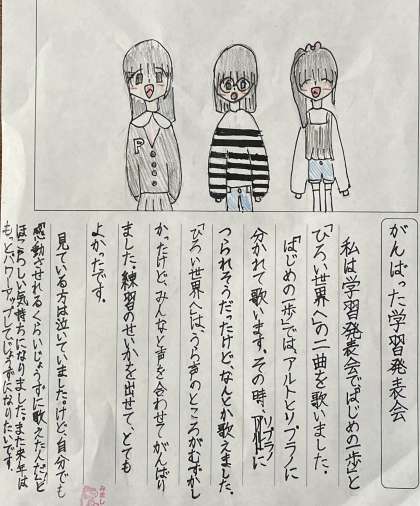 がんばった学習発表会
私は学習発表会で「はじめの一歩」と
「ひろい世界へ」の二曲を歌いました。
「はじめの一歩」では、アルトとソプラノに
分かれて歌います。その時、アルトに
つられそうだったけど、なんとか歌えました。
「ひろい世界へ」は、うら声のところがむずかし
かったけど、みんなと声を合わせてがんばり
ました。練習のせいかを出せて、とても
よかったです。
見ている方は泣いていました。けど、自分でも
「感動させれるくらいじょうずに歌えたんだ」と
ほこらしい気持ちになりました。また来年は
もっとパワーアップしてじょうずになりたいです。
P